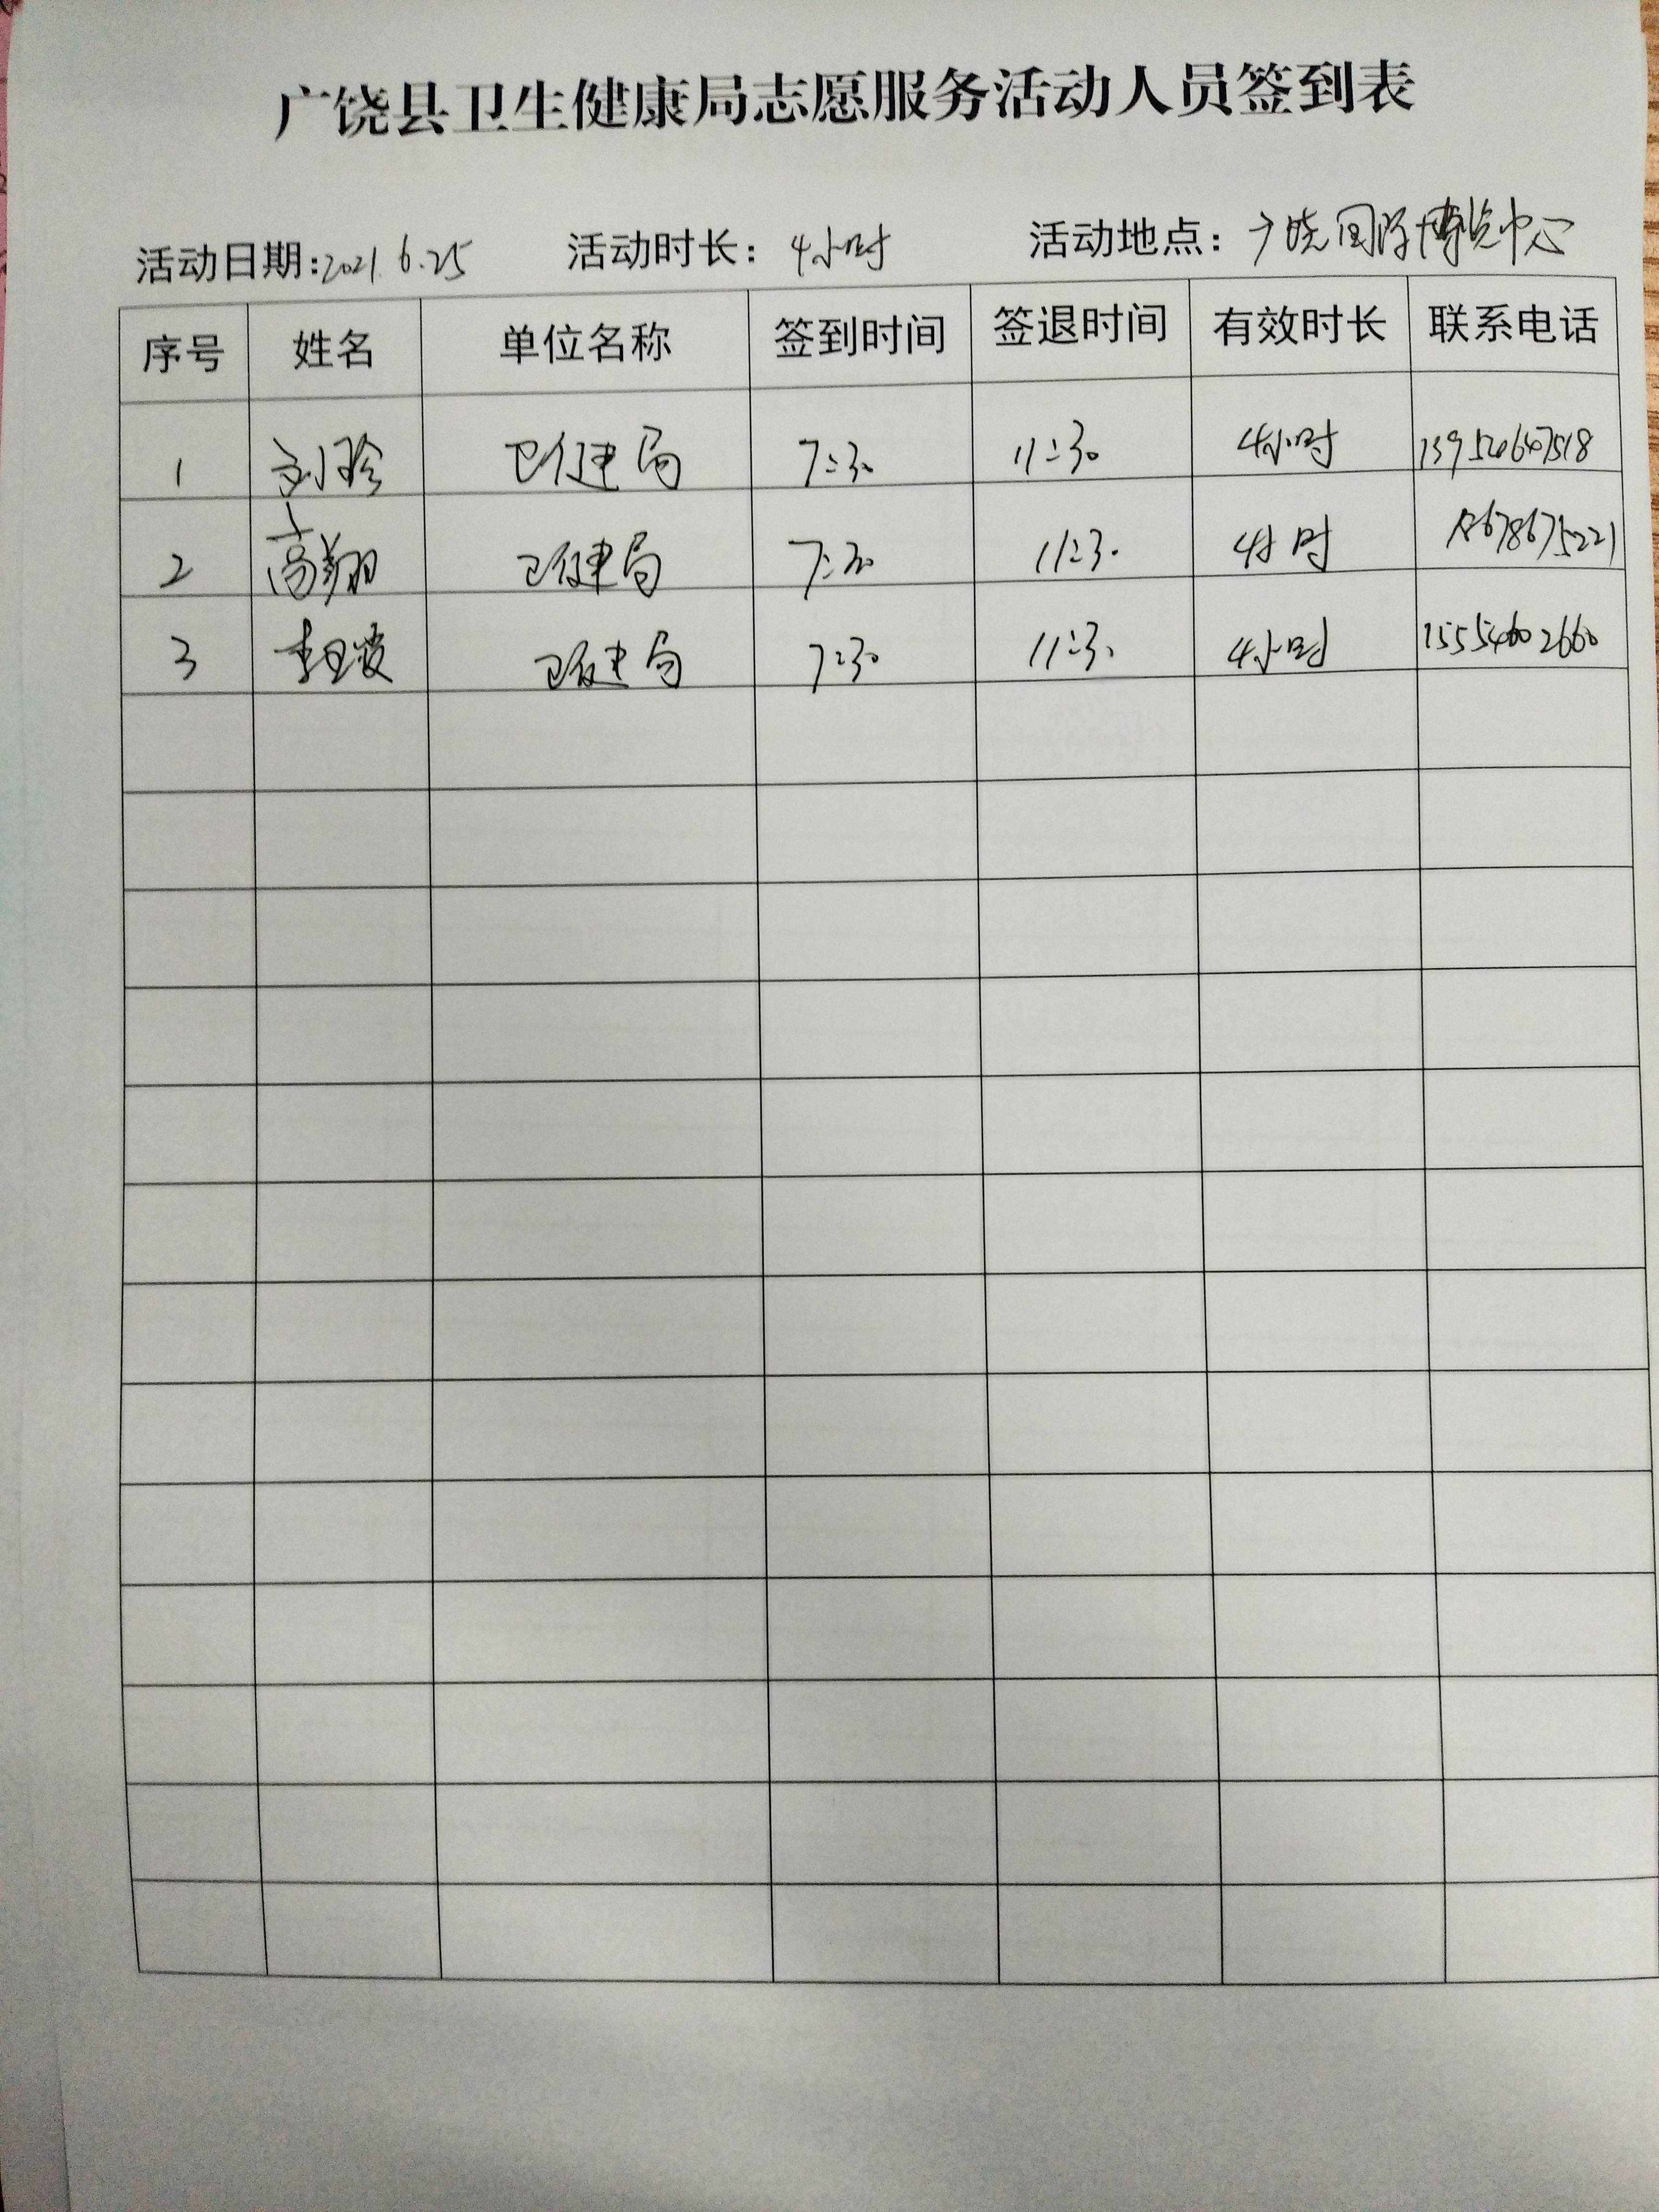 广饶县卫生健康局志愿服务活动人员签到表
活动日期:2021.6.25 活动时长：4小时 活动地点：广饶国际博览中心
序号 姓名 单位名称 签到时间 签退时间 有效时长 联系电话
1 刘珍 卫健局 7:30 11:30 4小时
2 高翔 卫健局 7:30 11:30 4小时 18678675221
3 卫健局 7:30 11:30 4小时 15554602660